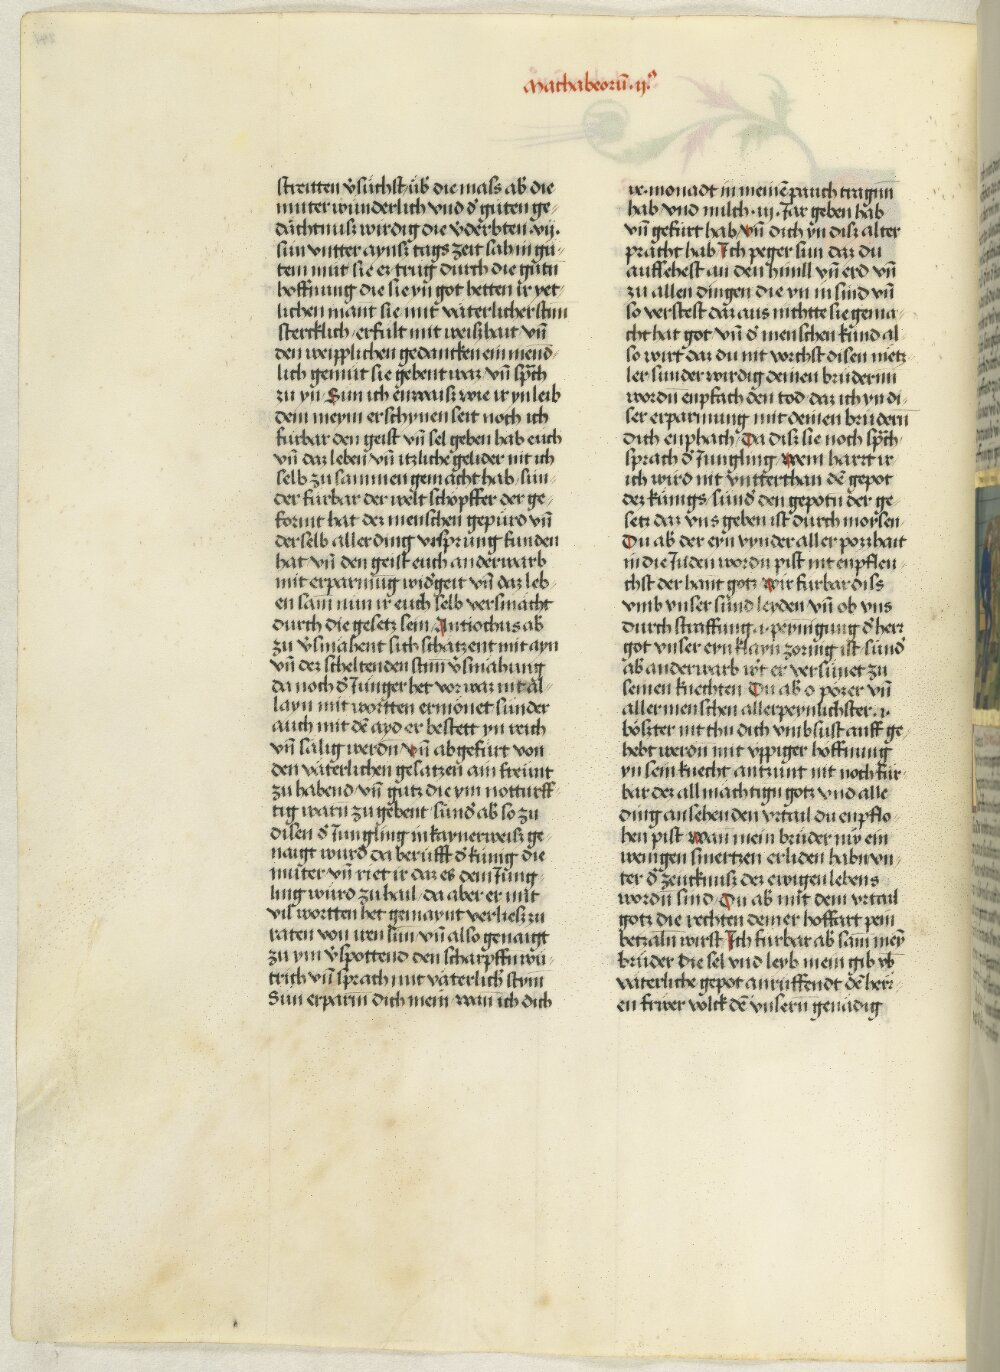 Machabeorū · ij°
streitten v̉suchst üb̉ die mass ab̉ die
muter wunderlich vnd d̉ guten ge-
dächtnuß wirdig die v̉derbten vij.
sun vntter ayns tags zeit sah in gu-
tem mut sie er trug durch die gůtn
hoffnung die sie yn got hetten ir yet-
lichen mant sie mit väterlicher stim
stercklich erfült mit weißhait vn̄
den weipplichen gedancken ein mend-
lich gemüt sie gebent was vn̄ sp̄ch
zu yn Sun ich enwaiß wie ir yn leib
dem meyin erschynen seit noch ich
fürbar den geist vn̄ sel geben hab euch
vn̄ daz leben vn̄ itzliche gelider nit ich
selb zu sammen gemacht hab sun-
der fürbar der welt schöpffer der ge-
formt hat dez menschen gepürd vn̄
der selb aller ding vrsprung funden
hat vn̄ den geist euch anderwarb
mit erparmūg wid̉geit vn̄ daz leb-
en sam nun ir euch selb versmächt
durch die gesetz sein Antiochus ab̉
zu v̉smähent sich schatzent mit ayn
vn̄ der scheltenden stim v̉smähung
da noch d̉ Jünger het vor waz nit al-
layn mit wortten ermonet sunder
auch mit dē ayd er bestett yn reich
vn̄ sälig werdn vn̄ abgefürt von
den väterlichen gesatzen ain freünt
zu habend vn̄ gutz die ym notturff-
tig warn zu gebent sünd̉ ab̉ so zu
disen d̉ Jüngling in kaynerweiß ge-
naigt würd da berüfft d̉ künig die
muter vn̄ riet ir daz es dem Jüng-
ling würd zu hail da aber er mit
vil wortten het gemaynt verließ zu
raten von iren sun vn̄ also genaigt
zu ym v̉spottend den scharpffn wü-
trich vn̄ sprach mit väterlich̉ stym
Sun erparm dich mein wan ich dich
ix. monadt in meinē pauch tragun
hab vnd milch .iij. Jar geben hab
vn̄ gefürt hab vn̄ dich yn diß alter
pracht hab Ich peger sun daz du
auffsehest an den himll vn̄ erd vn̄
zu allen dingen die yn in sind vn̄
so verstest daz aus nichtte sie gema-
cht hat got vn̄ d̉ menschen kund al-
so wirt daz du nit vorchst disen metz-
ler sunder wirdig deinen brüdern
wordn enpfach den tod daz ich yn di-
ser erparmung mit deinen brüdern
dich enphach Da diß sie noch sp̄ch
sprach d̉ Jungling Wem harrt ir
ich wird nit vntterthan dē gepot
dez künigs sünd̉ den gepotn der ge-
setz daz vns geben ist durch moysen
Du ab̉ der eyn vynder aller poßhait
in die Juden wordn pist nit enpflen-
chst der hant gotz wir fürbar diss
vmb vnser sünd leyden vn̄ ob vns
durch straffung .i. peynigung d̉ herr
got vnser eyn klayn zornig ist sünd̉
ab̉ anderwarb wirt er versünet zu
seinen knechten Du ab̉ o pözer vn̄
aller menschen allerpeynlichster .i.
böszter nit thu dich vmbsust auff ge-
hebt werdn mit vppiger hoffnung
yn sein knecht antzünt nit noch für-
bar dez allmächtign gotz vnd alle
ding ansehenden vrtail du enpflo-
hen pist Wan mein brüder nu ein
wenigen smertzen erliden habn vn-
ter d̉ zeucknuß dez ewigen lebens
wordn sind Du ab̉ mit dem vrtail
gotz die rechten deiner hoffart pein
betzaln wirst Ich fürbar ab̉ sam mey
brüder die sel vnd leyb mein gib vb̉
väterliche gepot anruffendt dē herr-
en ferrer volck dē vnsern genädig